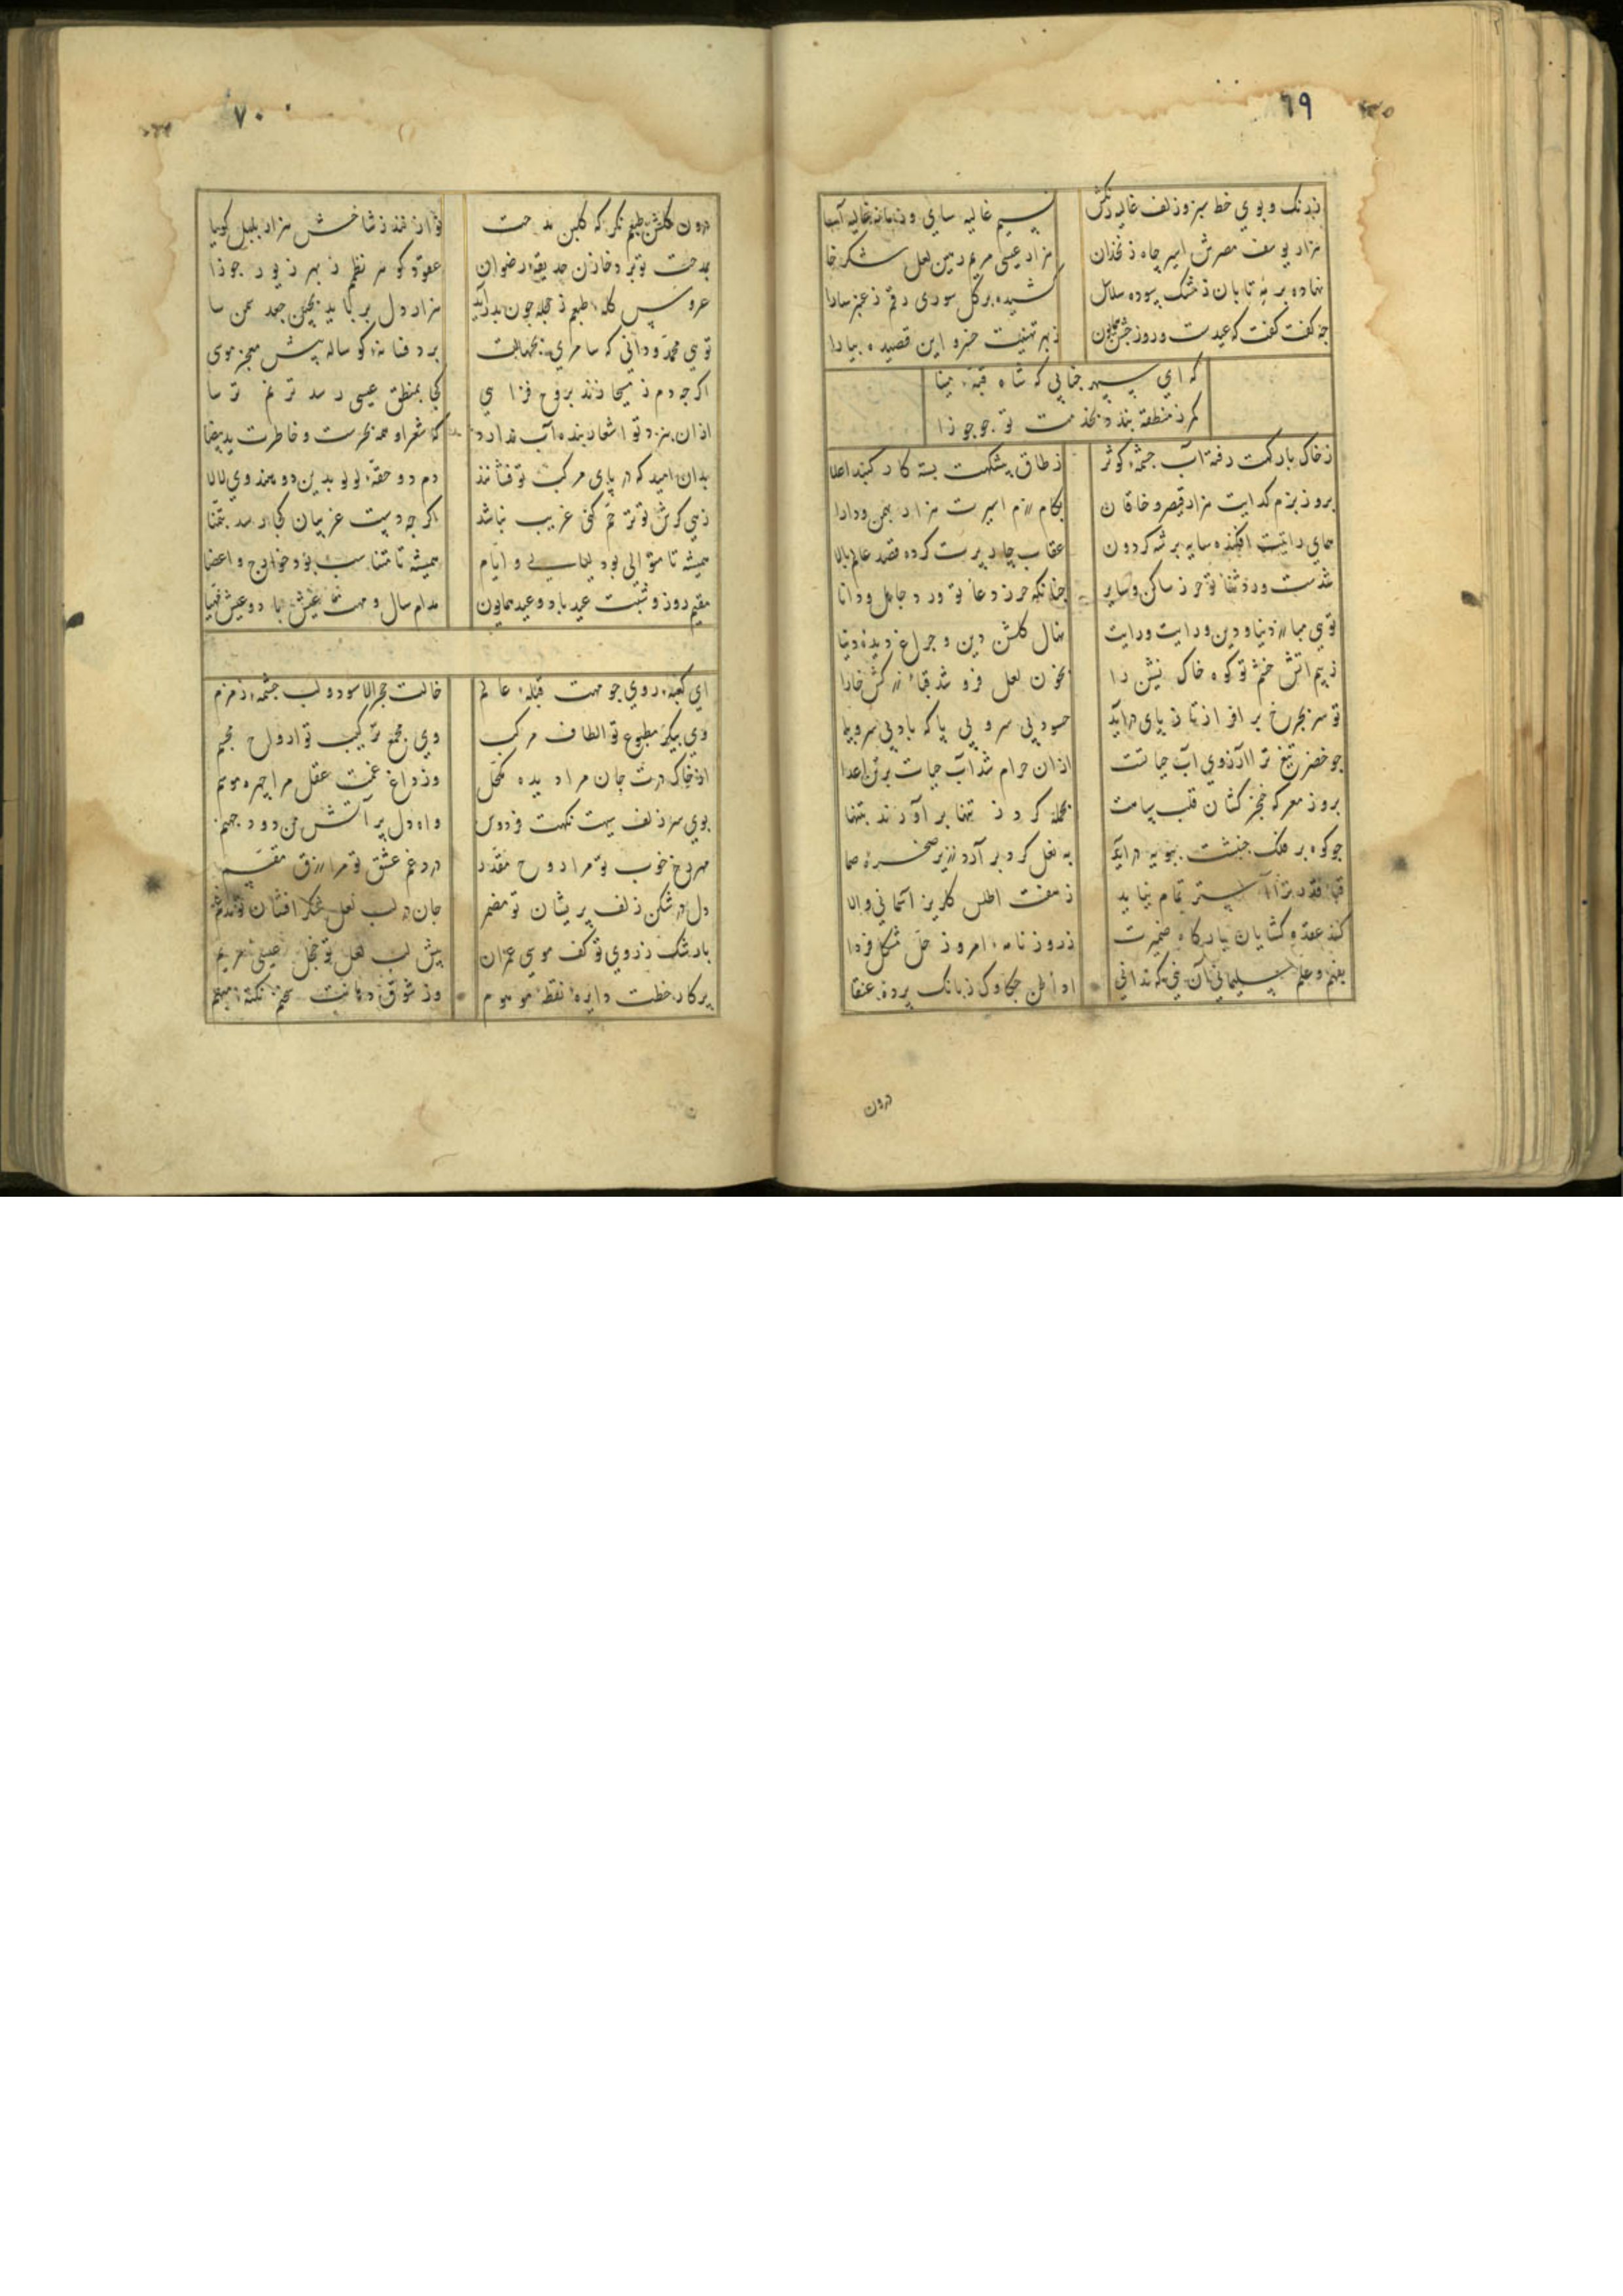 ٦٩
ز رنک و بوي خط سبز و زلف غالیه رنکش
نسیم غالیه ساي و زمانه غالیه آسا
هزار یوسف مصرش اسیر چاه زنخدان
هزار عیسی مریم رهین لعل شکر خا
نهاده بر مه تابان ز مشک سوده سلاسل
کشیده بر کل سوری رقم ز عنبر سارا
چه کفت کفت که عیدست و روز جشن همایون
ز بهر تهنیت خسرو این قصیده بیارا
که اي سپهر جنابی که شاه قبهٔ مینا
کمر ز منطقه بندد بخدمت تو چو جوزا
ز خاک بارکهت رفته آب چشمهٔ کوثر
ز طاق پیشکهت بسته کار کنبد اعلا
بروز بزم کدایت هزار قیصر و خاقان
بکام رزم اسیرت هزار بهمن و دارا
همای رایتت افکنده سایه بر شه کردون
عقاب چار پرت کرده قصد عالم بالا
شدست ورد ثنا تو حرز ساکن و سایر
چنانکه حرز دعا تو ورد جاهل و دانا
توي مبارز دنیا و دین و رایت و رایت
نهال کلشن دین و چراغ دیدهٔ دنیا
ز بیم اتش خشم تو کوه خاک نشین را
بخون لعل فرو شد قباء زرکش خارا
تو سر بچرخ برافراز تا ز پای درآید
حسود بی سر و بی پا که باد بی سر و بی پا
چو خضر تیغ ترا آرزوي آب حیاتست
ازان حرام شد آب حیات بر تن اعدا
بروز معرکه خنجر کشان قلب سپاهت
بحمله کرد ز تنها بر آورند بتنها
چو کوه بر فلک جنبشت بپویه درآید
به نعل کرد بر آرد ز زیر صخرهٔ صما
قباء قدر ترا آستر تمام نیاید
ز هفت اطلس کلریز آسمانی والا
کند عقده کشایان بارکاه ضمیرت
ز روزنامهٔ امروز حل مشکل فردا
بفهم و علم سلیمانی آن نی که ندانی
اداء لحن چکاوک ز بانک پردهٔ عنقا
درون
٧٠
درون کلشن طبعم نکر که کلبن مدحت
تو از نمد ز شاخش هزار بلبل کویا
بمدحت تو برد خازن حدیقهٔ رضوان
عقود کوهر نظمم ز بهر زیور جوزا
عروس کلهٔ طبعم ز حجله چون بدر آید
هزار دل برباید بچین جعد سمن سا
توي محمد و دانی که سامري بجهالت
برد فسانهٔ کوساله پیش معجز موسی
اکرچه دم ز مسیحا زند بروح فزایي
کجا بمنطق عیسی رسد ترنم ترسا
ازان بنزد تو اشعار بنده آب ندارد
که شعر او همه بحرست و خاطرت ید بیضا
بدان امید که در پای مرکب تو فشانند
دم دو حقهٔ لولو بدین دو هندوي لالا
زهی که شو تو ترحم کنی غریب نباشد
اکرچه دست غریبان کجا رسد بتمنا
همیشه تا متوالی بود لیالی و ایام
همیشه تا متناسب بود جوارح و اعضا
مقیم روز و شبت عید باد و عید همایون
مدام سال و مهت عیش باد و عیش مهیا
اي کعبهٔ روي چو مهت قبلهٔ عالم
خالت حجر الاسود و لب چشمهٔ زمزم
وي پیکر مطبوع تو الطاف مرکب
وی مجمع ترکیب تو ارواح مجسم
از خاک درت جان مرا دیده مکحل
وز داغ غمت عقل مرا چهره موسم
بوي سر زلف سیهت نکهت فردوس
واه دل پر آتش من دود جهنم
مهر رخ خوب تو مرا روح مقدر
درد غم عشق تو مرا رزق مقسم
دل در شکن زلف پریشان تو مضمر
جان در لب لعل شکر افشان تو مدغم
با رشک ز روي تو کف موسی عمران
پیش لب لعل تو خجل عیسی مریم
پرکار خطت دایرهٔ نقطهٔ موهوم
وز شوق دهانت سخنم نکتهٔ مبهم